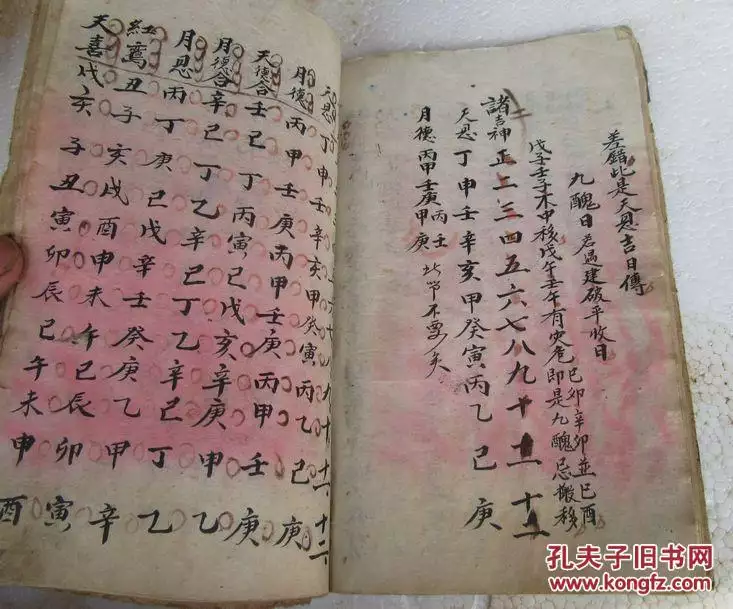 差錯此是天恩吉日傳
九醜日若遇建破平收日
己卯辛卯並己酉
戊子壬子木中移戊午壬午有灾危即是九醜忌搬移
諸吉神正二三四五六七八九十十一十二
天恩丁申壬辛亥甲癸寅丙乙巳庚
月德丙甲壬庚丙甲壬庚
不要矣
天恩丁申壬辛亥甲癸寅丙乙巳庚
月德丙甲壬庚丙甲壬庚丙甲壬庚
天德合壬巳丁丙寅己戊亥辛庚申乙
月德合辛己丁乙辛己丁乙辛己丁乙
月恩丙丁庚己戊辛壬癸庚乙甲辛
紅鸞丑子亥戌酉申未午巳辰卯寅
天喜戌亥子丑寅卯辰巳午未申酉
孔夫子旧书网
www.kongfz.com